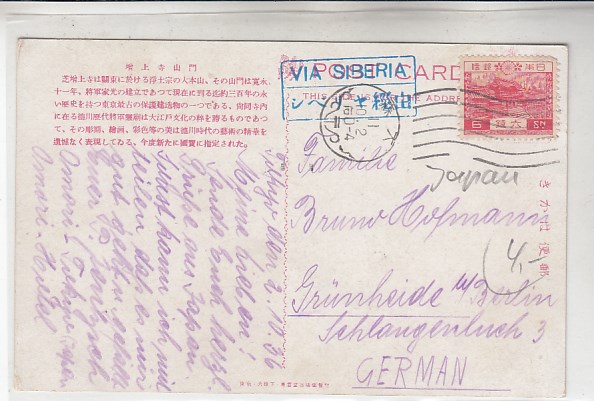 増上寺山門
芝増上寺は關東に於ける浄土宗の大本山、その山門は寛永
十一年、將軍家光の建立であつて現在に到る迄約三百年の永
い歴史を持つ東京最古の保護建造物の一つである、尚同寺内
に在る徳川歴代將軍靈廟は大江戸文化の粋を誇るものであつ
て、その彫刻、繪画、彩色等の美は徳川時代の藝術の精華を
遺憾なく表現してゐる、今度新たに國寶に指定された。
VIA SIBERIA
シベリヤ經由
POST CARD
THIS SIDE
ADDRESS
日本郵便
六錢
6 SN
Tokyo den 2.10.36
Meine Lieben!
Sende Euch herzl.
Grüße aus Japan.
Sonst kann ich mit
teilen daß es mir
gut geht
Euer
Omori Tokyo Japan
Omori-Hotel
Familie
Bruno Hofmann
Grünheide b/Berlin
Schlangenluch 3
GERMAN
Japan
4,-
きかは便郵